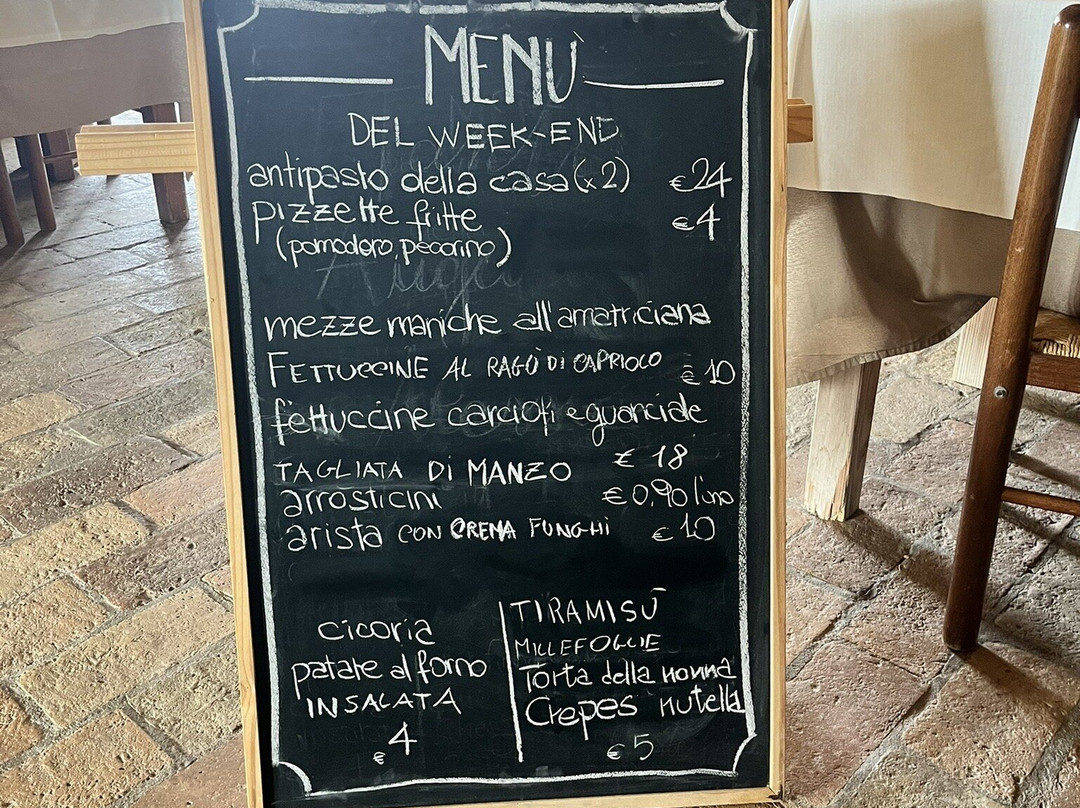 MENÙ
DEL WEEK-END
antipasto della casa (x2) €24
pizzette fritte €4
(pomodoro, pecorino)
mezze maniche all'amatriciana
FETTUCCINE AL RAGÙ DI CAPRIOLO €10
fettuccine carciofi e guanciale
TAGLIATA DI MANZO € 18
arrosticini €0,90 l'uno
arista CON CREMA FUNGHI € 10
cicoria
patate al forno
INSALATA
€ 4
TIRAMISÙ
MILLEFOGLIE
Torta della nonna
Crepes nutella
€ 5